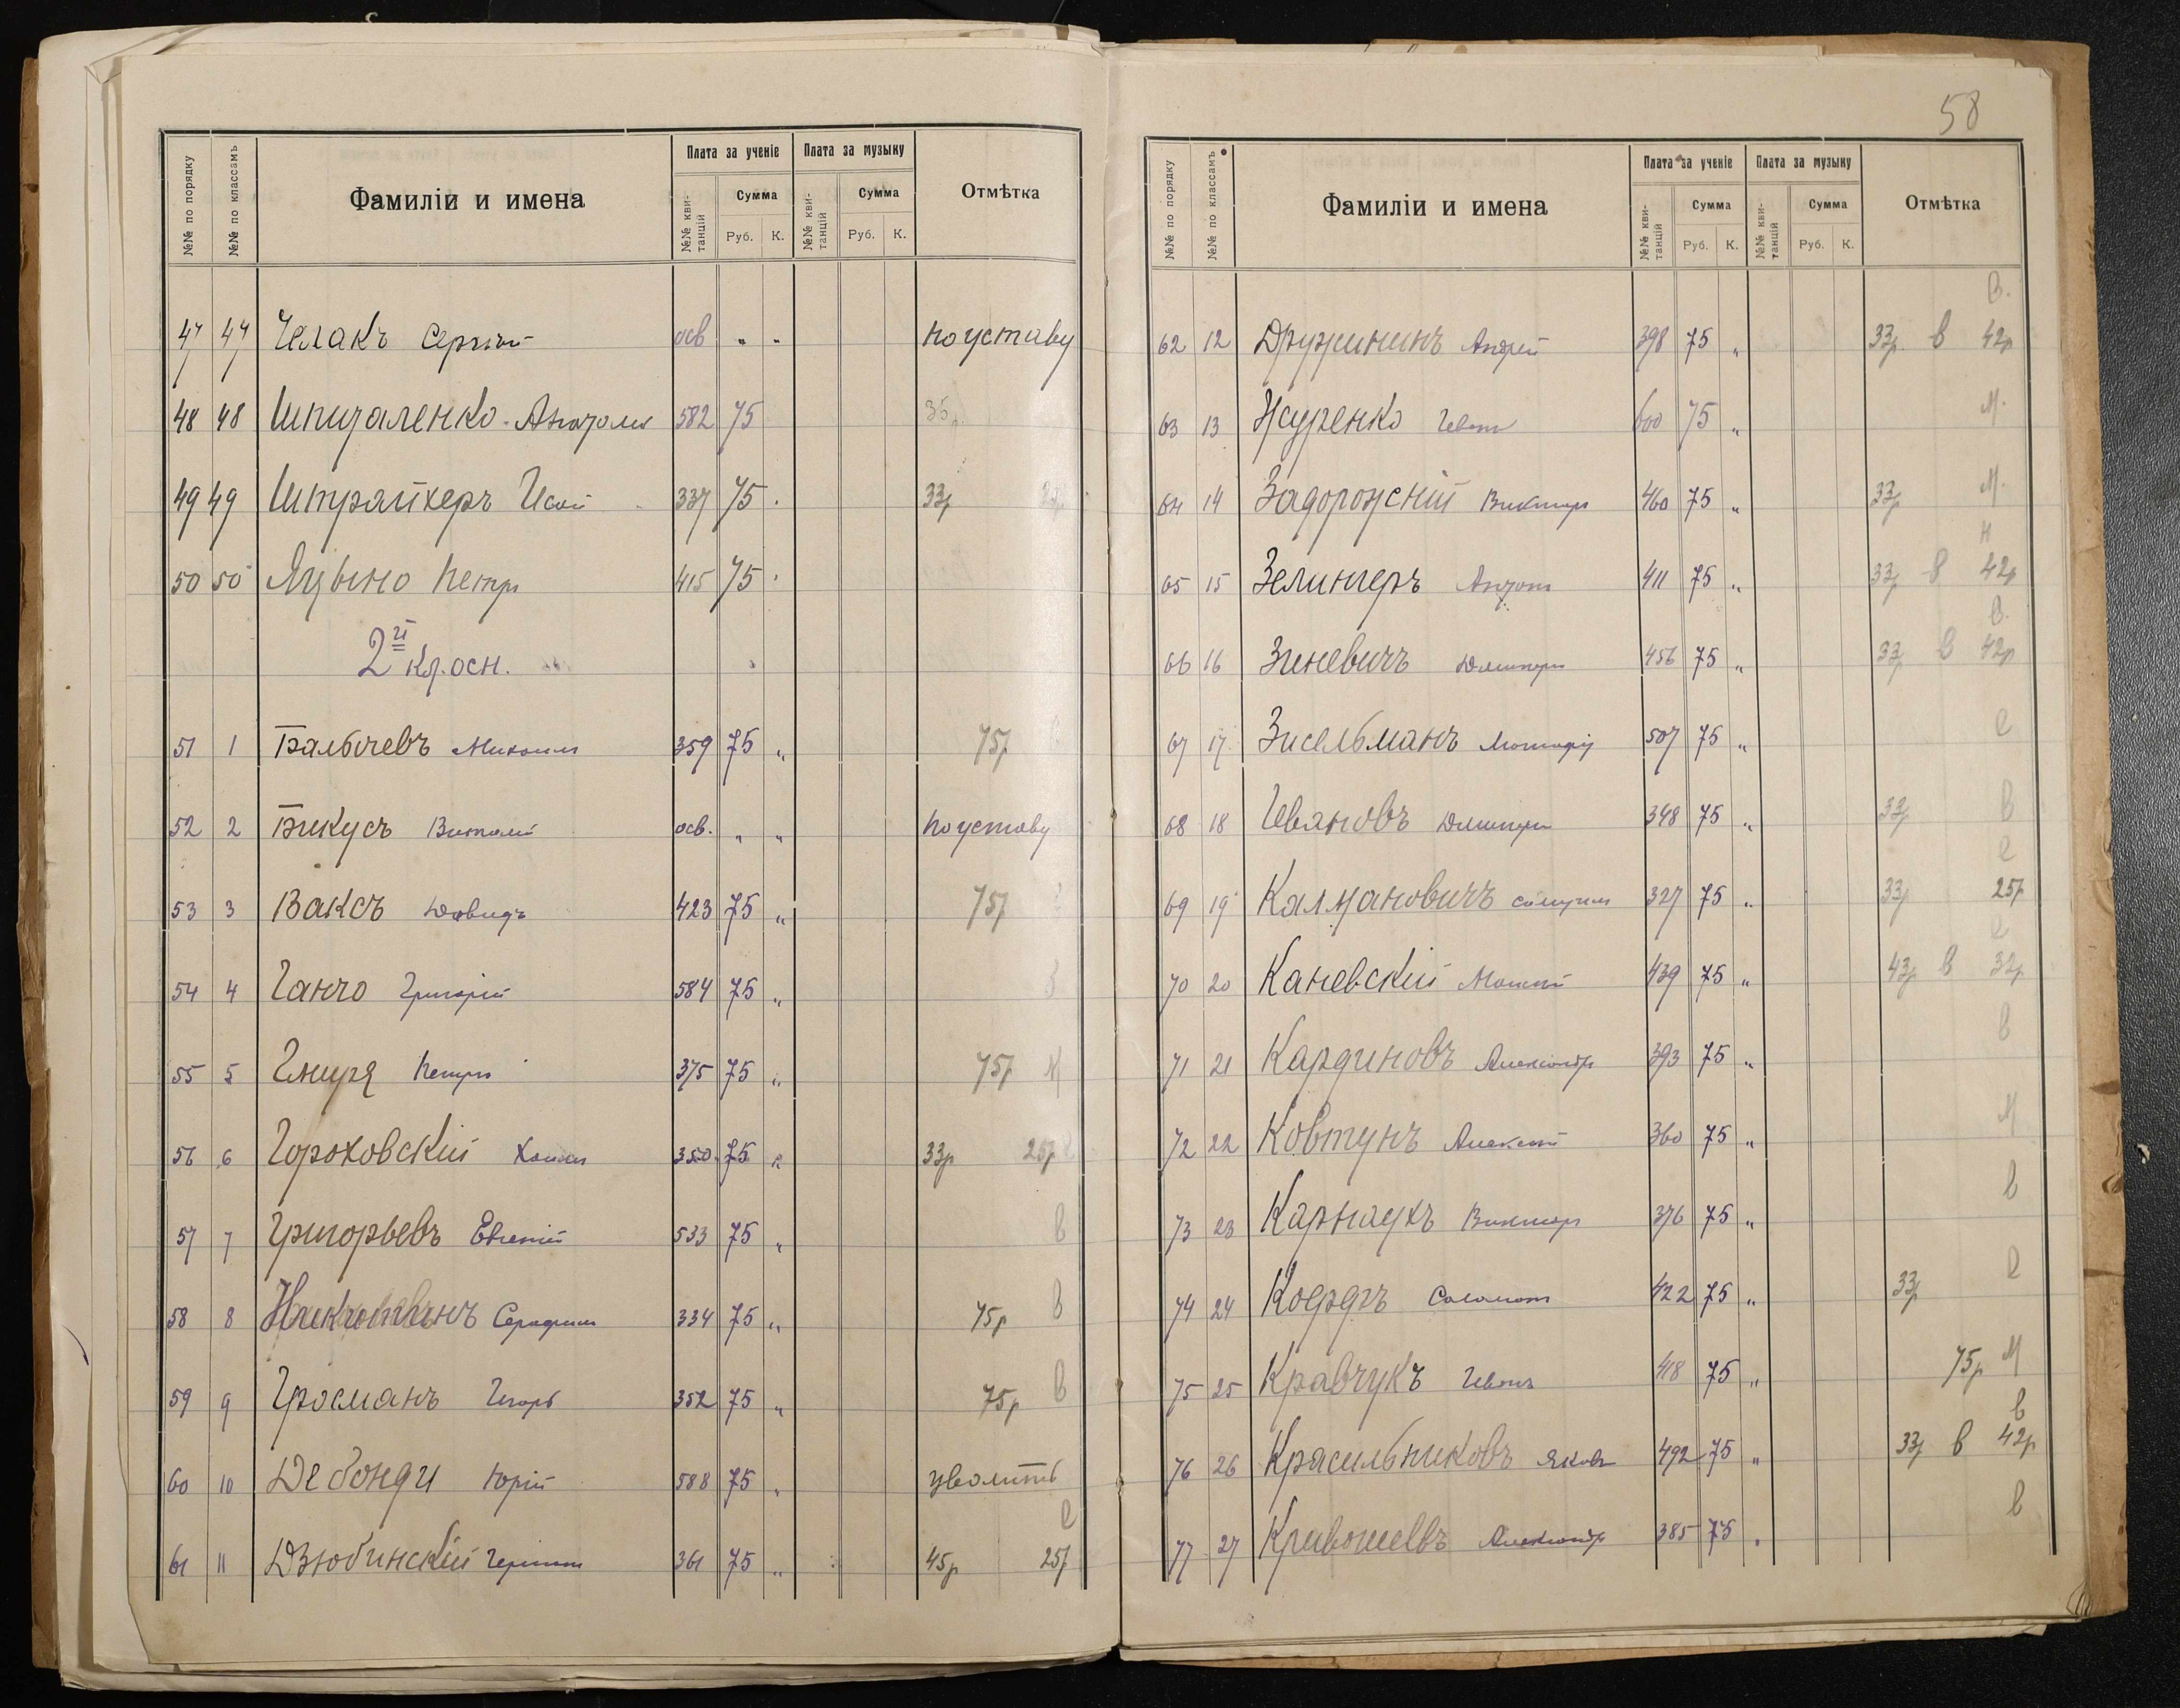 №№ по порядку №№ по классамъ Фамиліи и имена Плата за ученіе Плата за музыку Отмѣтка
№№ квитанцій Сумма №№ квитанцій Сумма
Руб. К. Руб. К.
47 47 Челакъ Сергѣй осв „ „ по уставу
48 48 Шпигаленко Анатолій 582 75 35р
49 49 Штрайхеръ Исай 337 75 33р
50 50 Яцыно Петръ 415 75
2й кл. осн.
51 1 Михаилъ 359 75 „ 75р
52 2 Бикусъ Виталій осв. „ „ по уставу
53 3 Ваксъ Давидъ 423 75 „ 75р
54 4 Ганчо Григорій 584 75 „
55 5 Гницѧ Петръ 375 75 „ 75р
56 6 Гороховскій Хаимъ 350 75 „ 33р 25р
57 7 Григорьевъ Евгеній 533 75 „ в
58 8 Серафимъ 334 75 „ 75р в
59 9 Гросманъ Игорь 352 75 „ 75р в
60 10 Де Бонди Юрій 588 75 „ уволить
е
61 11 Дзюбинскій Германъ 361 75 „ 45р 25р
58
№№ по порядку №№ по классамъ Фамиліи и имена Плата за ученіе Плата за музыку Отмѣтка
№№ квитанцій Сумма №№ квитанцій Сумма
Руб. К. Руб. К.
в.
62 12 Дружининъ Андрей 398 75 „ 33р в 42р
63 13 Журенко Иванъ 600 75 „ м.
64 14 Задорожній Викторъ 460 75 „ 33р м.
н
65 15 Зелингеръ Антонъ 411 75 „ 33р в 42р
в.
66 16 Зиневичъ Дмитрій 456 75 „ 33р в 42р
67 17 Зисельманъ 507 75 „ е
68 18 Ивановъ Дмитрій 348 75 „ 33р в
е
69 19 Калмановичъ Самуилъ 327 75 „ 33р 25р
е
70 20 Каневскій Моисей 439 75 „ 43р в 32р
71 21 Кардиновъ Александръ 393 75 „ в
72 22 Ковтунъ Алексѣй 360 75 „ м
73 23 Карнаухъ Викторъ 376 75 „ в
74 24 Соломонъ 422 75 „ 33р е
75 25 Кравчукъ Иванъ 418 75 „ 75р м
в
76 26 Красильниковъ Яковъ 492 75 „ 33р в 42р
77 27 Кривошеевъ Александръ 385 75 „ в